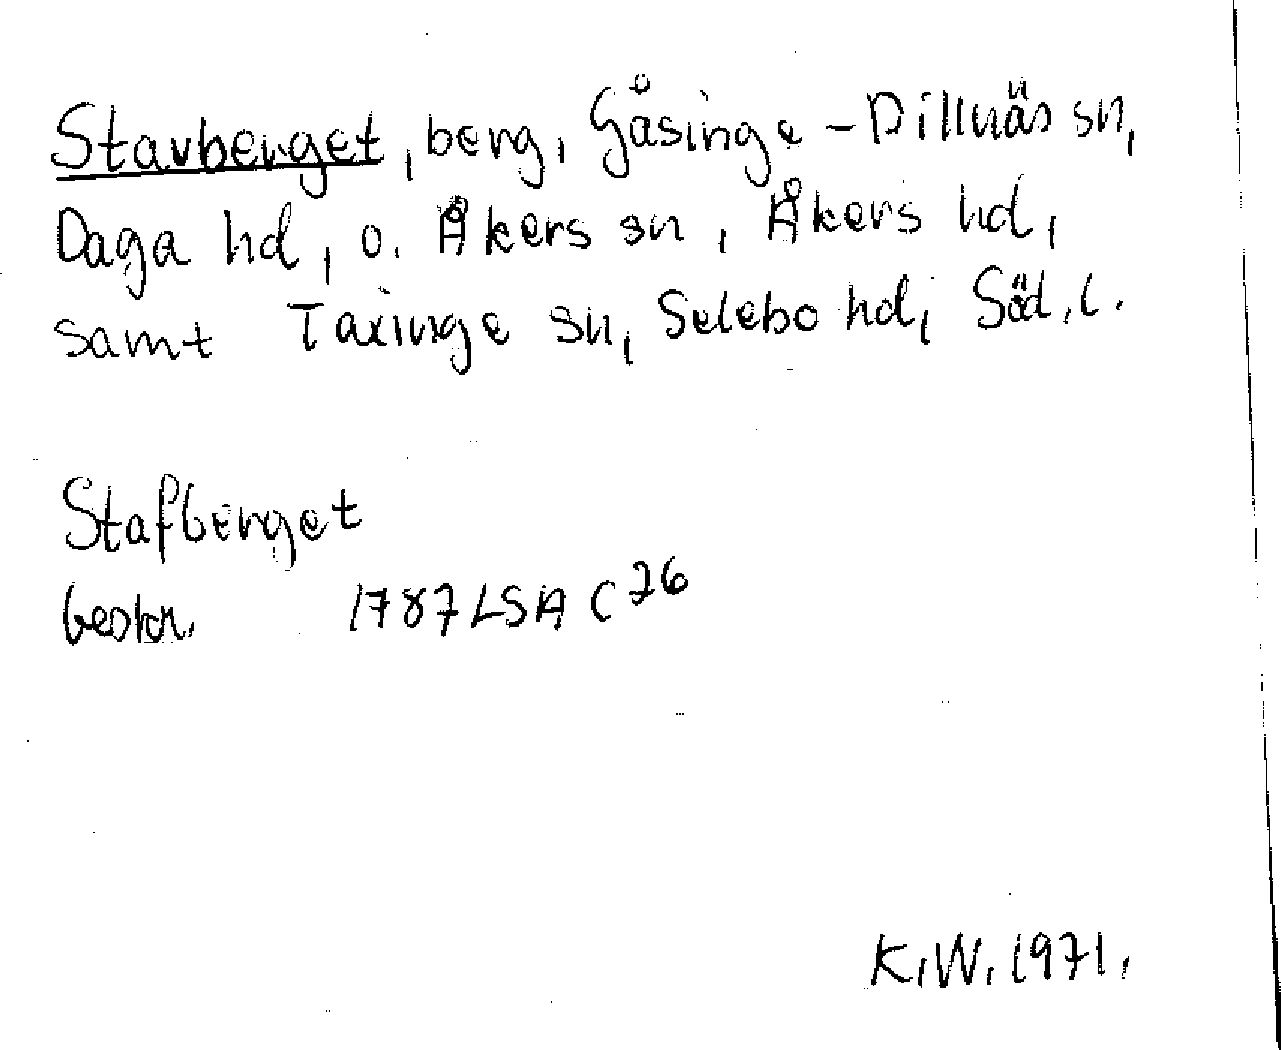 Stavberget, berg, Gåsinge-Dillnäs sn,
Daga hd, o. Åkers sn, Åkers hd,
samt Taxinge sn, Selebo hd, Söd. l.
Stafberget
beskr. 1787 LSA C 76
K.W. 1971.